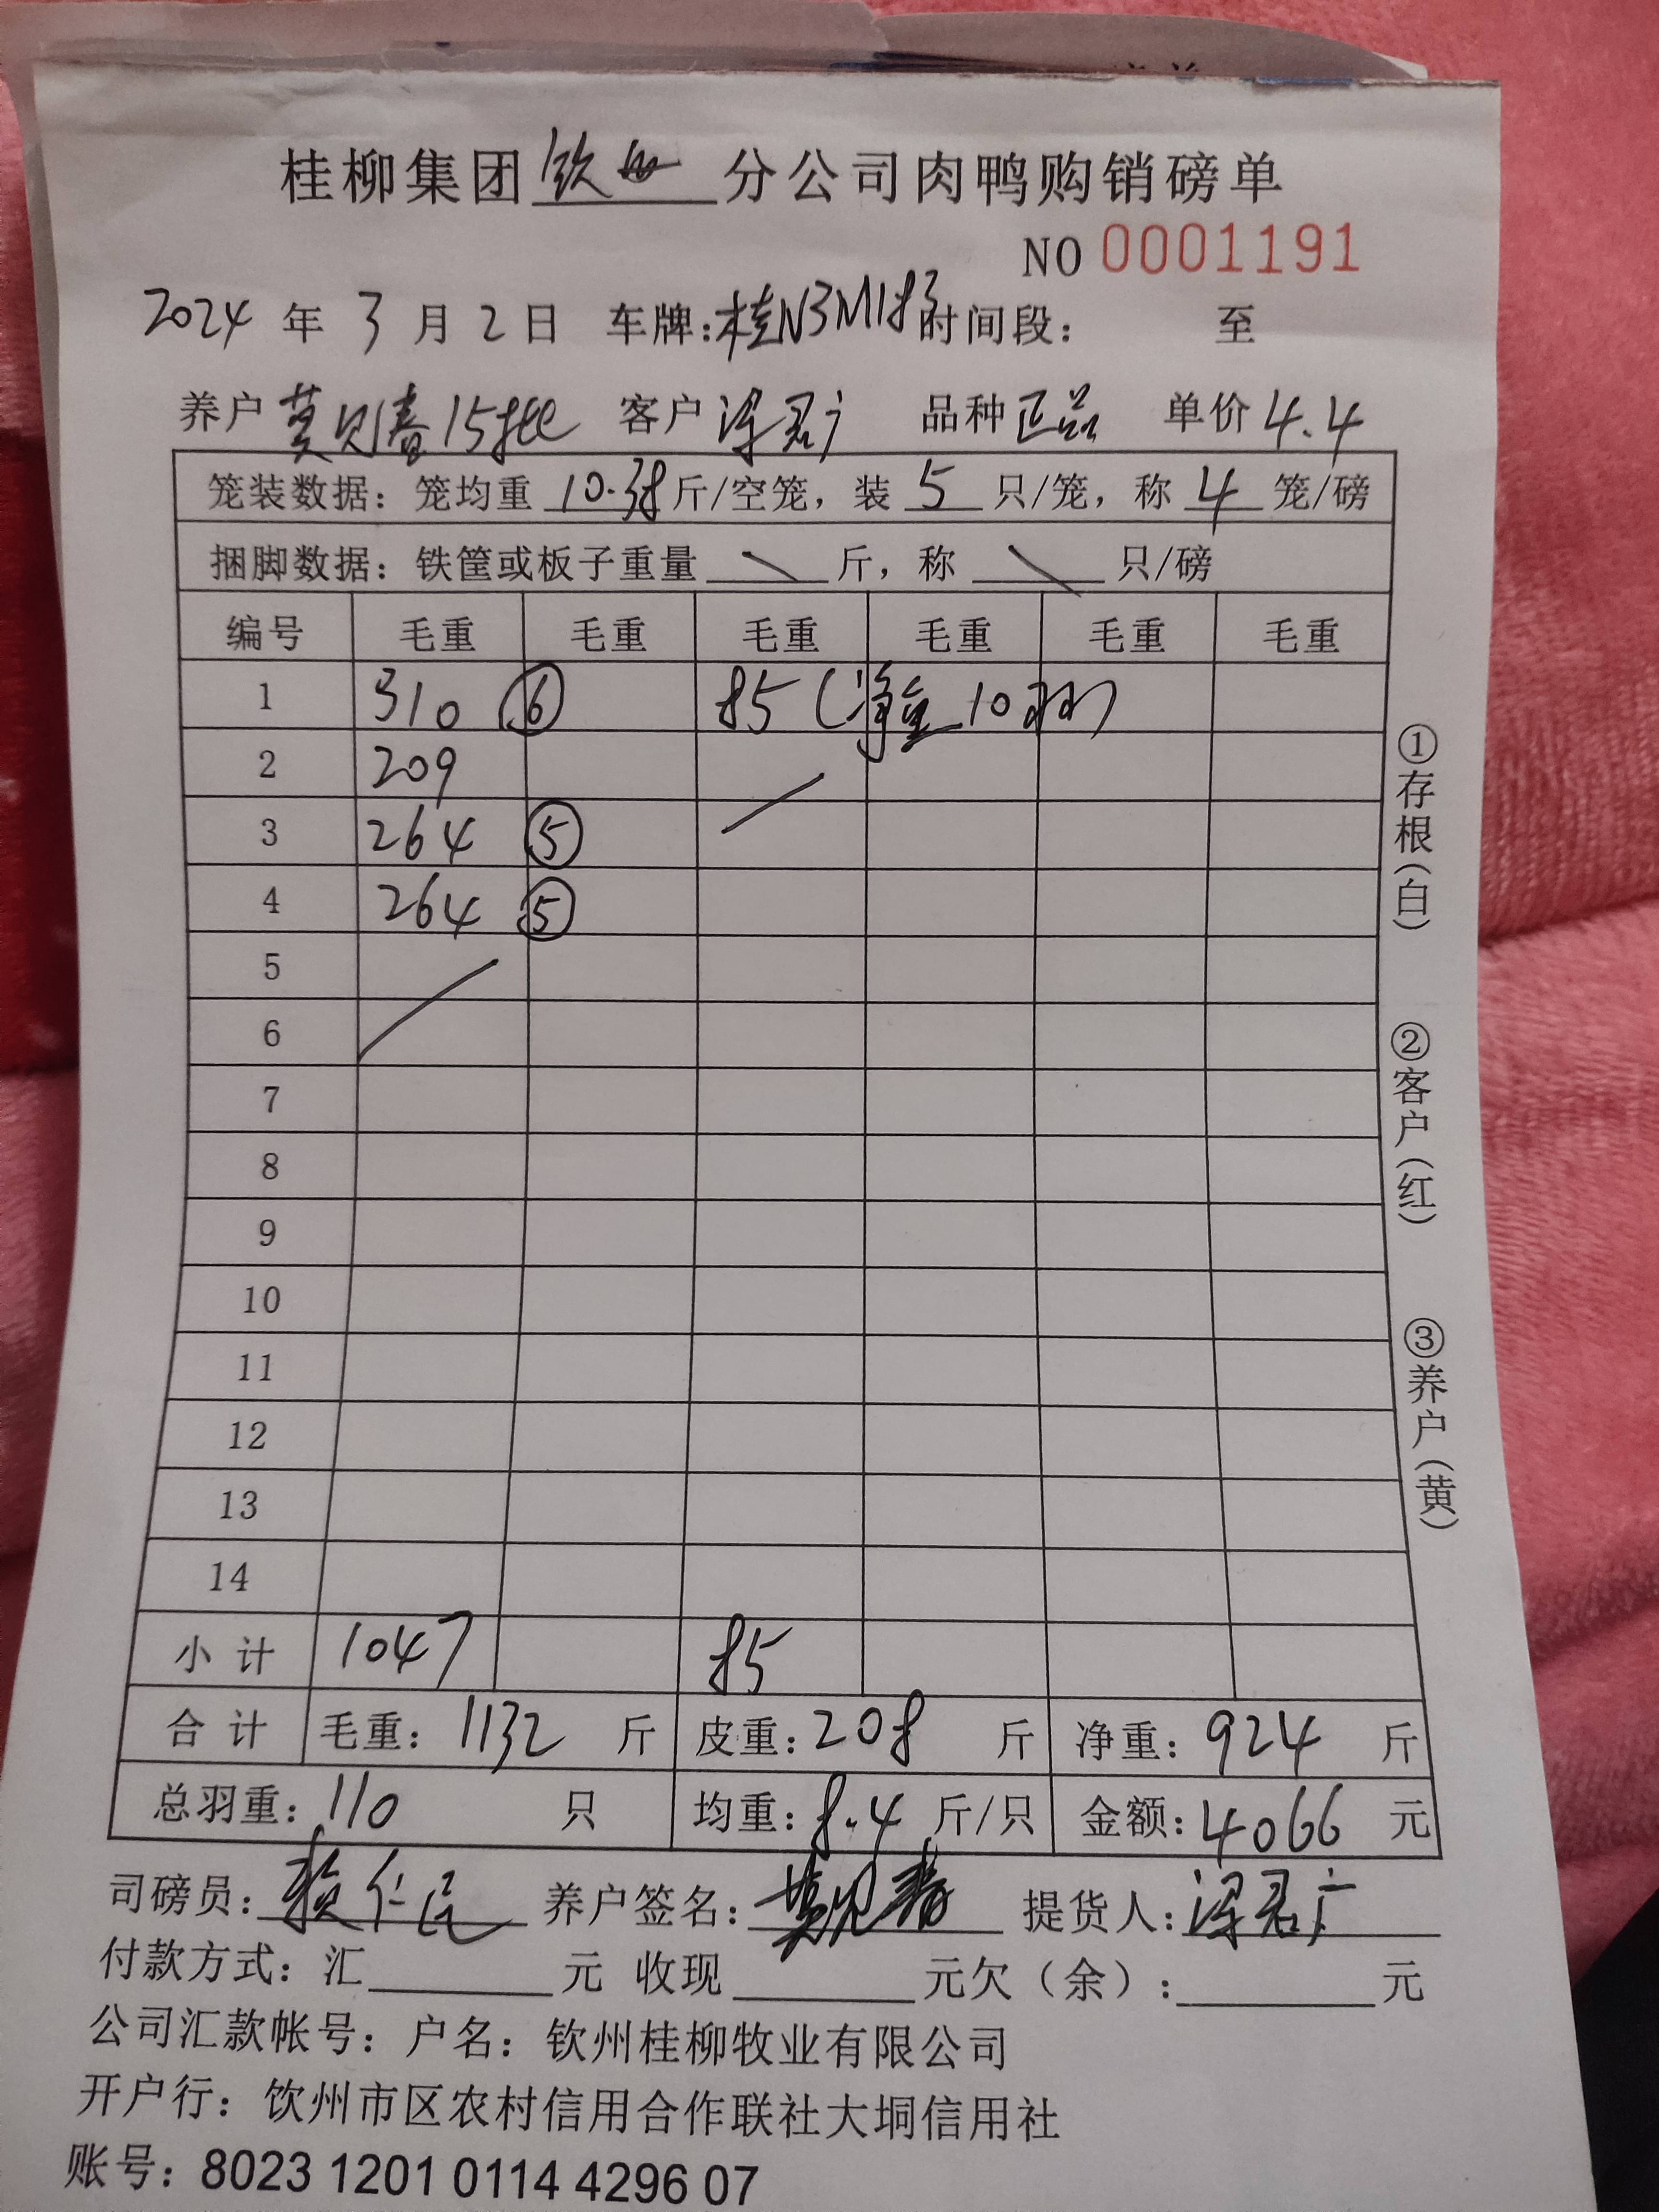 桂柳集团钦州分公司肉鸭购销磅单
NO 0001191
2024 年 3 月 2 日 车牌:桂N3M183时间段: 至
养户 莫见春15批 客户 梁君广 品种 正品 单价 4.4
笼装数据: 笼均重 10.38 斤/空笼, 装 5 只/笼, 称 4 笼/磅
捆脚数据: 铁筐或板子重量 斤, 称 只/磅
编号 毛重 毛重 毛重 毛重 毛重 毛重
1 310 ⑥ 85 (净重10只)
2 209
3 264 ⑤
4 264 ⑤
5
6
7
8
9
10
11
12
13
14
小计 1047 85
合计 毛重: 1132 斤 皮重: 208 斤 净重: 924 斤
总羽重: 110 只 均重: 8.4 斤/只 金额: 4066 元
司磅员: 赖仁民 养户签名: 莫见春 提货人: 梁君广
付款方式: 汇 元 收现 元欠(余): 元
公司汇款帐号: 户名: 钦州桂柳牧业有限公司
开户行: 饮州市区农村信用合作联社大垌信用社
账号: 8023 1201 0114 4296 07
①存根(白)
②客户(红)
③养户(黄)